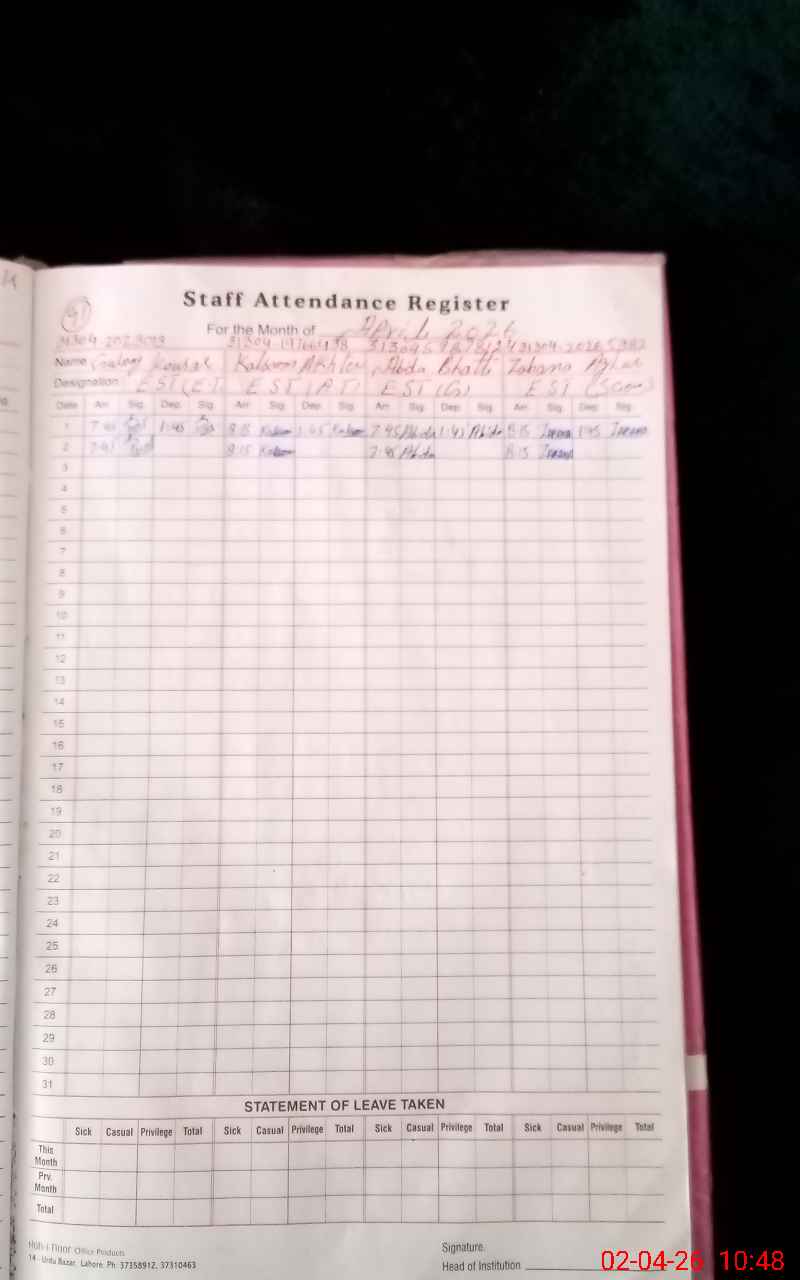 Staff Attendance Register
For the Month of April 2026
Name Kousar Kalsoom Akhtar Abda Bhatti Zahana Azhar
Designation EST (E.T) EST (A.T) EST (G) EST (Scon)
Date Arr. Sig. Dep. Sig. Arr. Sig. Dep. Sig. Arr. Sig. Dep. Sig. Arr. Sig. Dep. Sig.
1 7:45 1:45 8:15 Kalsoom 1:45 Kalsoom 7:45 Abda 1:45 Abda 8:15 1:45
2 7:45 8:15 Kalsoom 7:45 Abda 8:15
3
4
5
6
7
8
9
10
11
12
13
14
15
16
17
18
19
20
21
22
23
24
25
26
27
28
29
30
31
STATEMENT OF LEAVE TAKEN
Sick Casual Privilege Total Sick Casual Privilege Total Sick Casual Privilege Total Sick Casual Privilege Total
This
Month
Prv.
Month
Total
Koh-i-Noor Office Products
14 - Urdu Bazar, Lahore. Ph: 37358912, 37310463
Signature.
Head of Institution
02-04-26 10:48